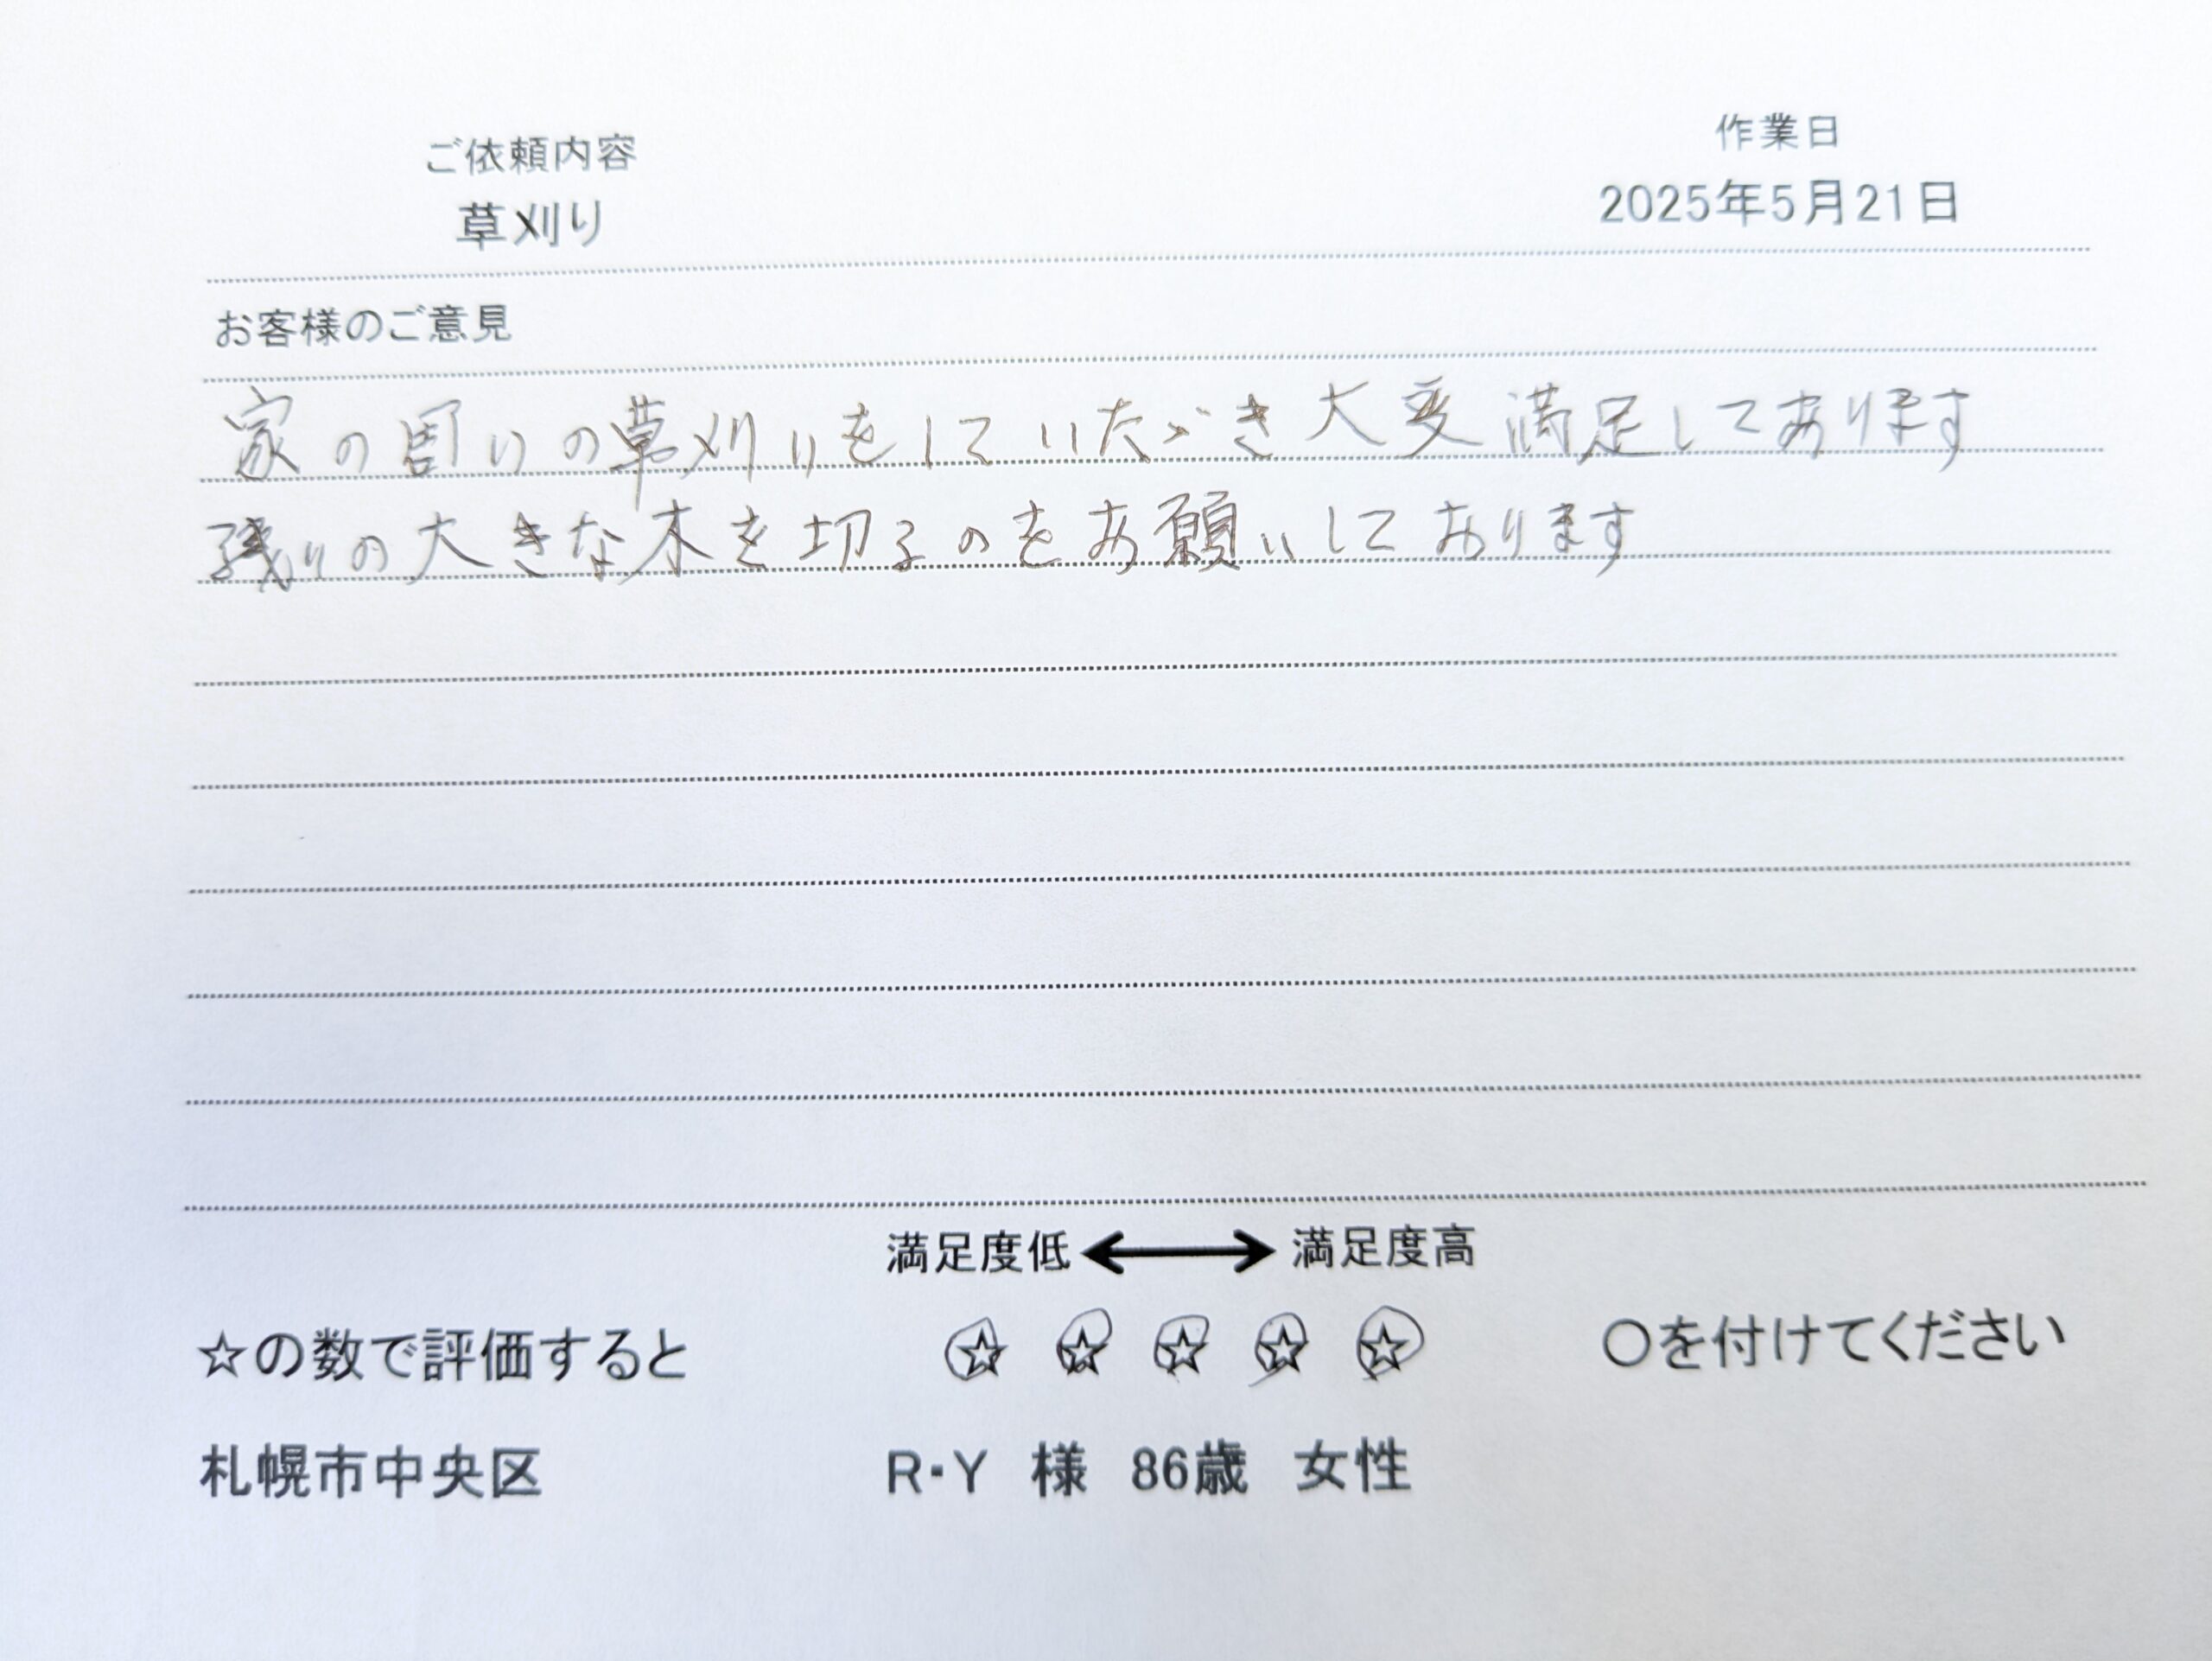 ご依頼内容
作業日
草刈り
2025年5月21日
お客様のご意見
家の周りの草刈りをしていただき大変満足しております
残りの大きな木を切るのをお願いしております
満足度低 ⟷ 満足度高
☆の数で評価すると ☆ ☆ ☆ ☆ ☆ ○を付けてください
札幌市中央区 R・Y 様 86歳 女性